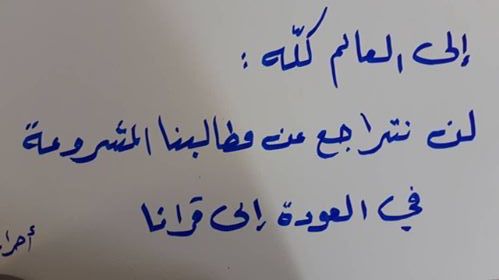 إلى العالم كلّه :
لن نتراجع عن مطالبنا المشروعة
في العودة إلى قرانا